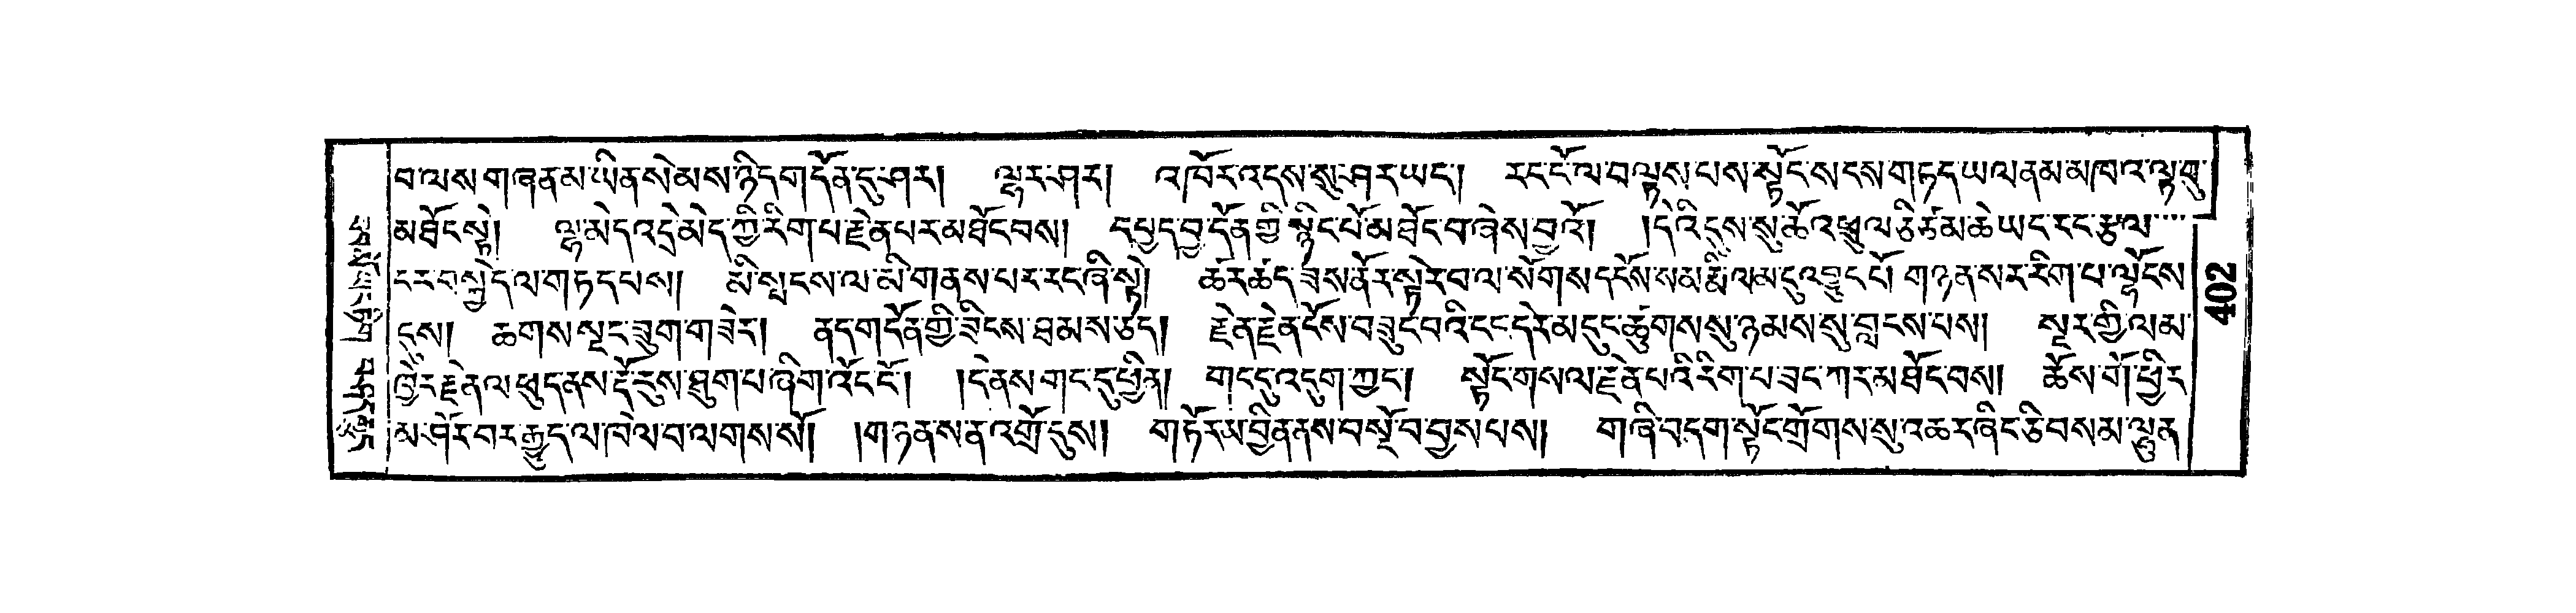 བ་ལས་གཞན་མ་ཡིན་སེམས་ཉིད་གདོན་དུ་ཤར། ལྷར་ཤར། འཁོར་འདས་སུ་ཤར་ཡང་། རང་ངོ་ལ་བལྟས་པས་སྟོང་སངས་གཏད་ཡལ་ནམ་མཁའ་ལྟ་བུ་
མ་ཐོང་སྟེ། ལྷ་མེད་འདྲེ་མེད་ཀྱི་རིག་པ་རྗེན་པར་མཐོང་བས། དཔྱད་བྱ་དོན་གྱི་སྙིང་པོ་མཐོང་བ་ཞེས་བྱའོ། །དེའི་དུས་སུ་ཆོ་འཕྲུལ་ཅི་ཙམ་ཆེ་ཡང་རང་རྩལ་
ངར་བསྐྱེད་ལ་གཏད་པས། མི་སྤངས་ལ་མི་གནས་པར་རང་ཞི་སྟེ། ཆར་ཆད་ཟས་ནོར་སྟེར་བ་ལ་སོགས་དངོས་སམ་རྨི་ལམ་དུ་འབྱུང་པོ་གཉན་སར་རིག་པ་ལྷོངས་
དུས། ཆགས་སྡང་ཟུག་གཟེར། ནད་གདོན་གྱི་ཟིངས་ཐམས་ཅད། རྗེན་རྗེན་ངོས་བཟུང་བའི་ངང་དེར་མདུང་ཚུགས་སུ་ཉམས་སུ་བླངས་པས། སྔར་གྱི་ལམ་
ཁྱེར་རྗེན་ལ་ཕུད་ནས་དོ་དུས་ཐུག་པ་ཞིག་འོང་ངོ་། །དེ་ནས་གང་དུ་ཕྱིན། གང་དུ་འདུག་ཀྱང་། སྟོང་གསལ་རྗེན་པའི་རིག་པ་ཟང་ཀར་མཐོང་བས། ཆོས་གོ་ཕྱིར་
མ་ཤོར་བར་རྒྱུད་ལ་ཁེལ་བ་ལགས་སོ། །གཉན་ས་ན་འགྲོ་དུས། གཏོར་མ་བྱིན་ནས་བསྔོ་བ་བྱས་པས། གཞི་བདག་སྟོང་གྲོགས་སུ་འཆར་ཞིང་ཅི་བསམ་ལྷུན་
204